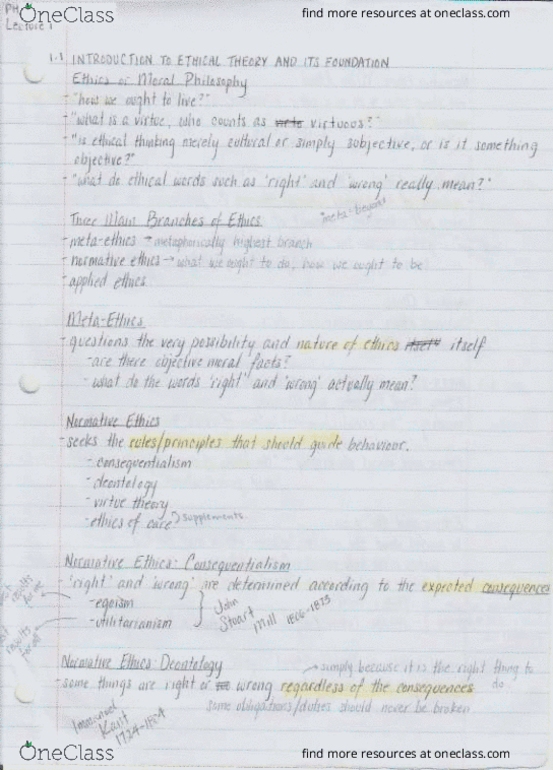 OneClass
find more resources at oneclass.com
PH
Lecture 1
1.1 INTRODUCTION TO ETHICAL THEORY AND ITS FOUNDATION
Ethics or Moral Philosophy
- "how we ought to live?"
- "what is a virtue, who counts as virtuous?"
- "is ethical thinking merely cultural or simply subjective, or is it something
objective?"
- "what do ethical words such as 'right' and 'wrong' really mean?"
"meta-beyond"
Three Main Branches of Ethics
- meta-ethics → metaphorically highest branch
- normative ethics → what we ought to do, how we ought to be
- applied ethics
Meta-Ethics
- questions the very possibility and nature of ethics itself
- are there objective moral facts?
- what do the words 'right' and 'wrong' actually mean?
Normative Ethics
- seeks the rules/principles that should guide behaviour.
- consequentialism
- deontology
- virtue theory
- ethics of care supplements
Normative Ethics: Consequentialism
- 'right' and 'wrong' are determined according to the expected consequences
results for me
- egoism
- utilitarianism
John Stuart Mill
results for all
Normative Ethics: Deontology
→ simply because it is the right thing to do
- some things are right or wrong regardless of the consequences
some obligations/duties should never be broken
Immanuel Kant 1724-1804
OneClass
find more resources at oneclass.com